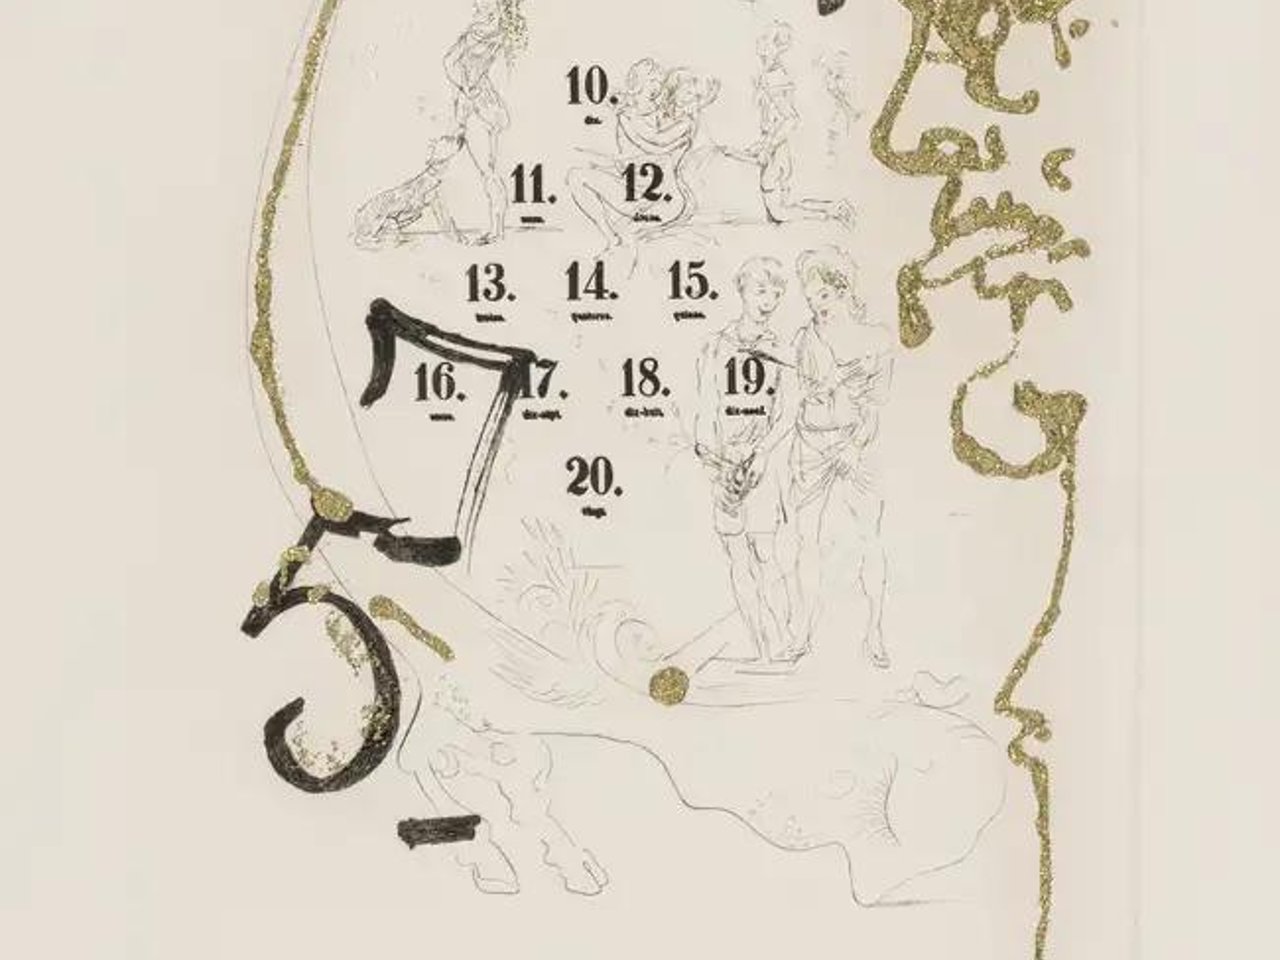 10.
dix.
11. 12.
onze. douze.
13. 14. 15.
treize. quatorze. quinze.
16. 17. 18. 19.
dix-sept. dix-huit. dix-neuf.
20.
vingt.
7
5